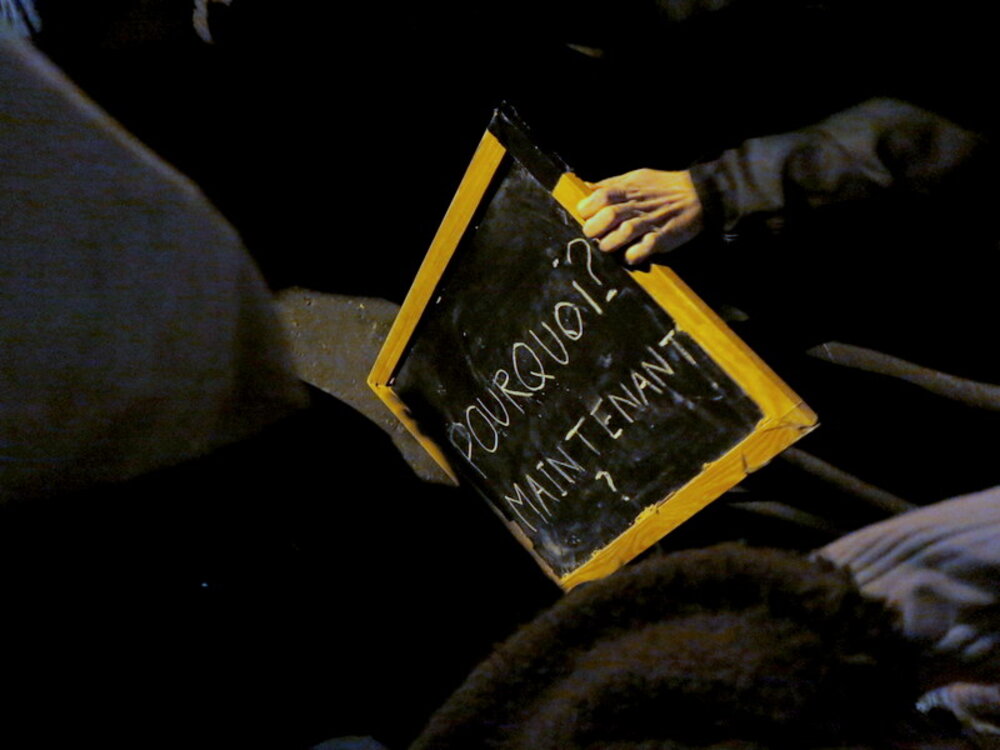 POURQUOI?
MAINTENANT
?